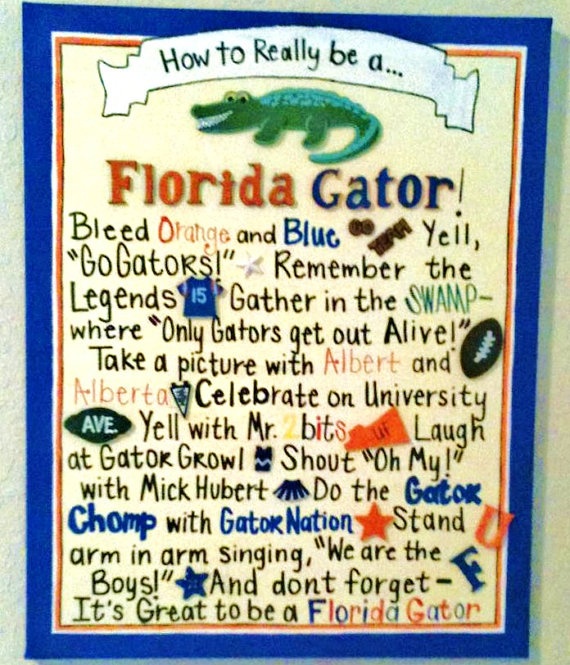 How to Really be a...
Florida Gator!
Bleed Orange and Blue GO TEAM Yell,
"Go Gators!" Remember the
Legends 15 Gather in the SWAMP-
where "Only Gators get out Alive!"
Take a picture with Albert and
Alberta Celebrate on University
AVE. Yell with Mr. 2bits UF Laugh
at Gator Growl Shout "Oh My!"
with Mick Hubert Do the Gator
Chomp with Gator Nation Stand U
arm in arm singing, "We are the F
Boys!" And dont forget-
It's Great to be a Florida Gator